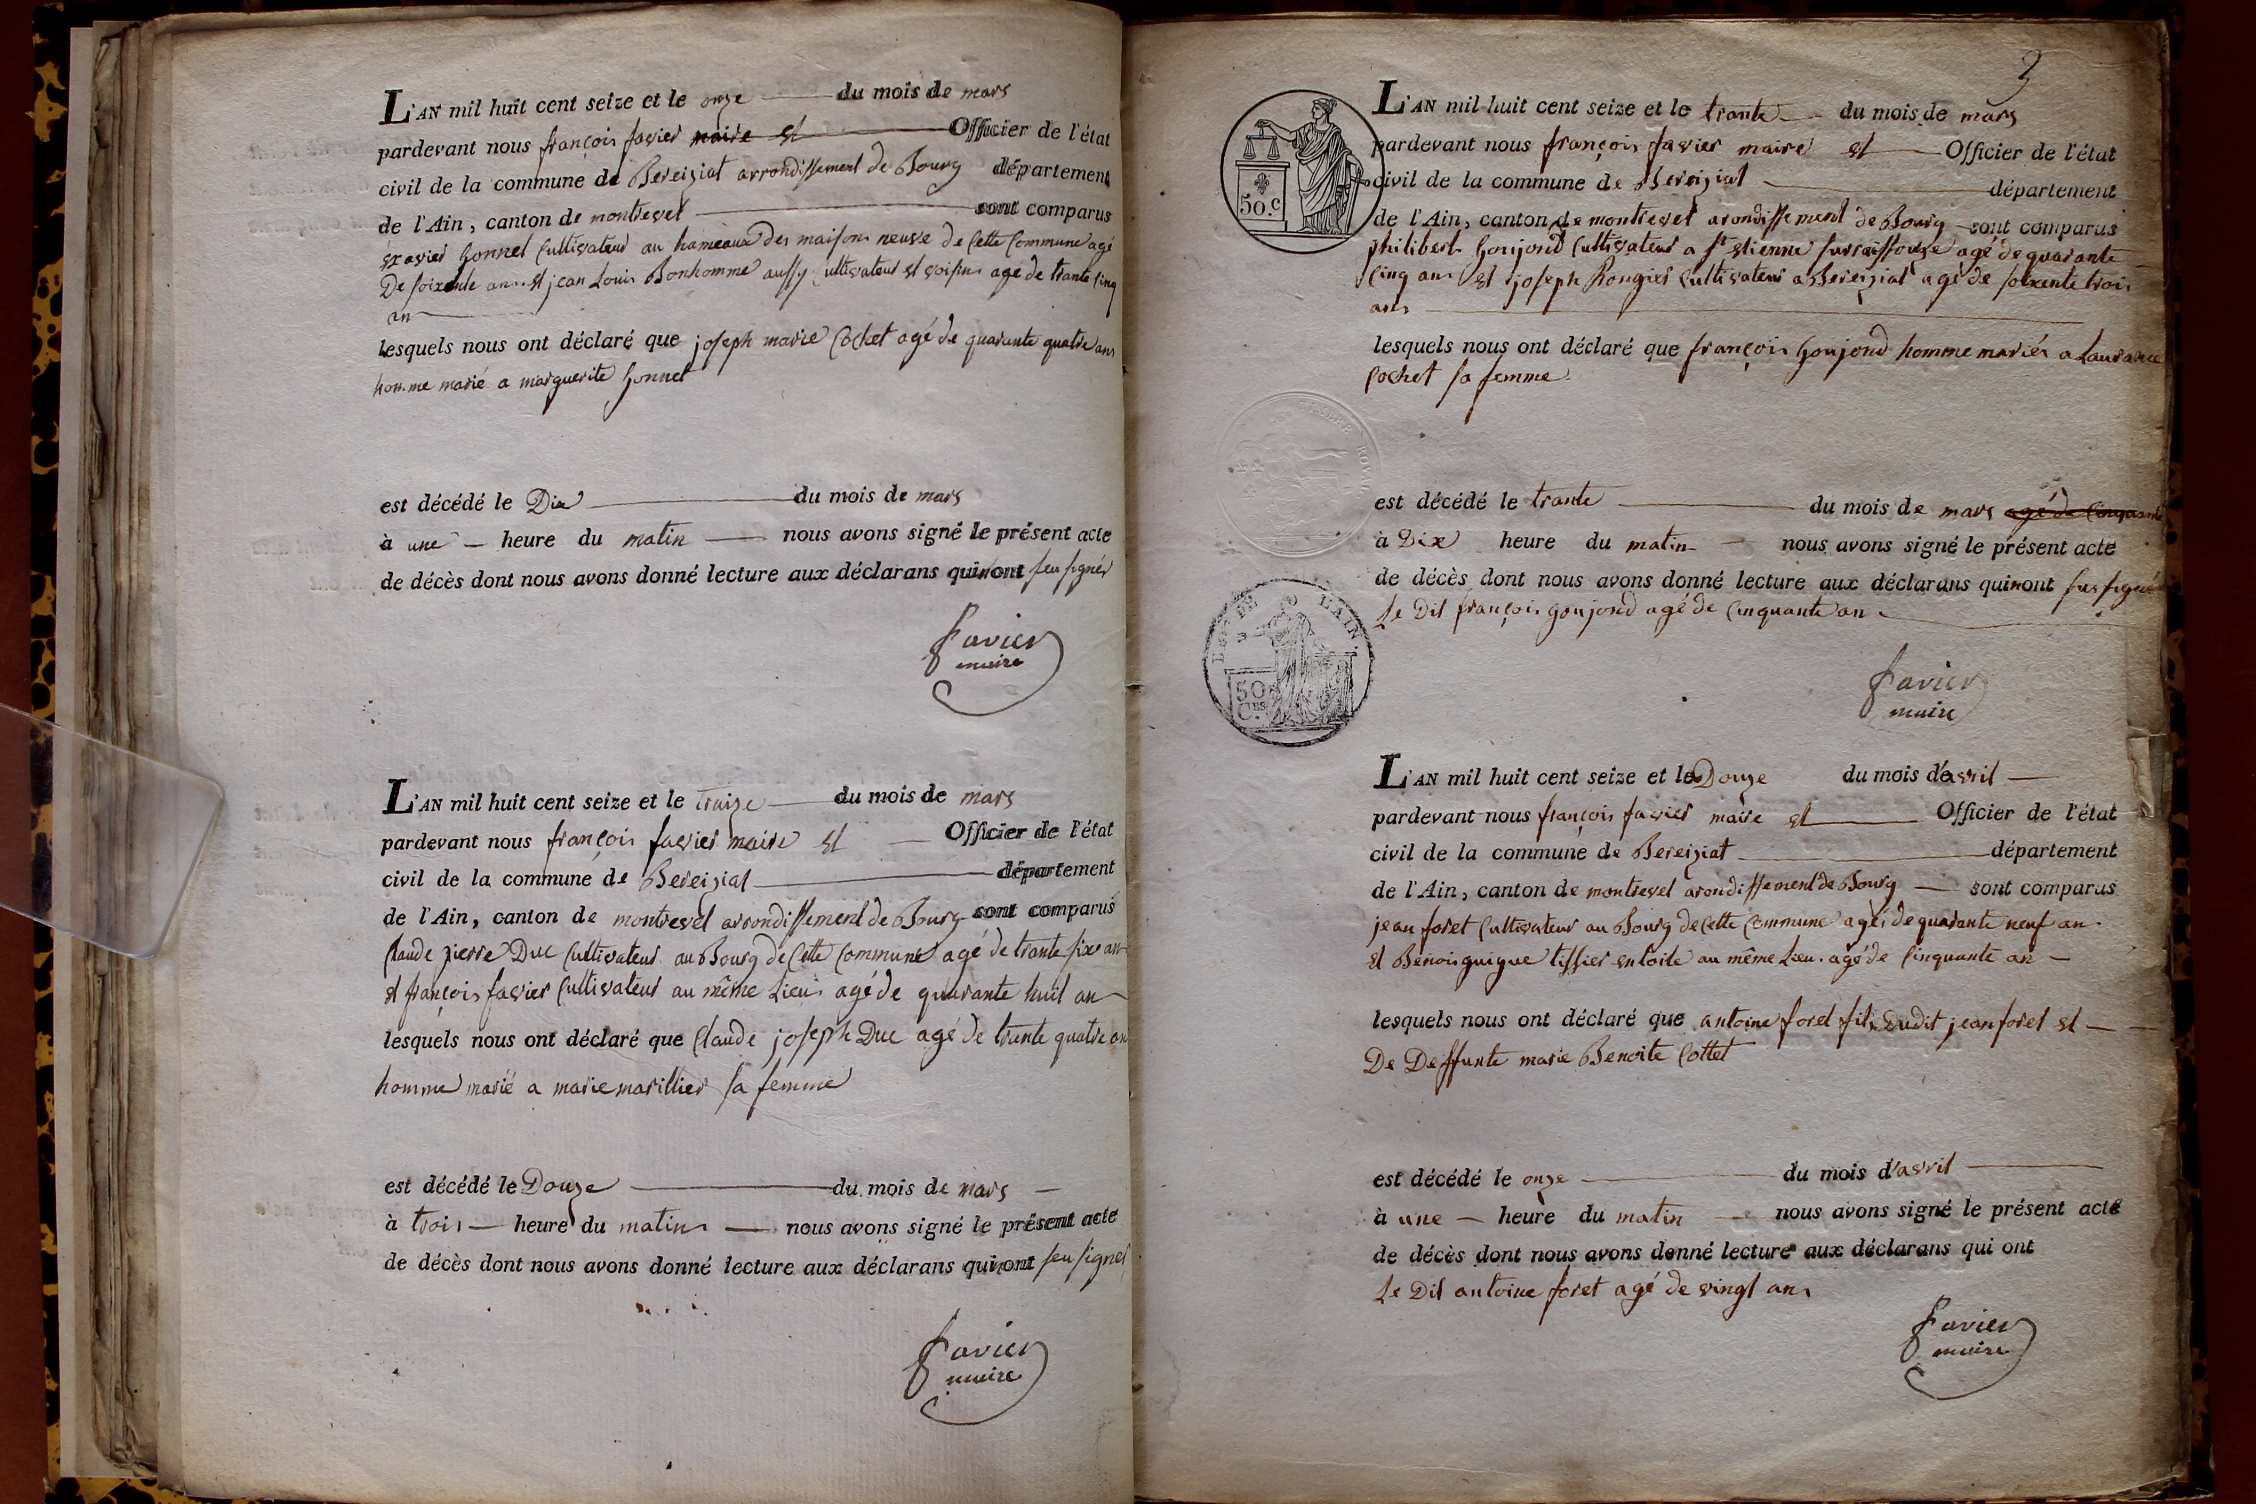 L'AN mil huit cent seize et le onze du mois de mars
pardevant nous françois favier maire et Officier de l'état
civil de la commune de Bereiziat arrondissement de Bourg département
de l'Ain, canton de montrevel sont comparus
gonnet Cultivateur au hameaux des maisons neuve de Cette Commune agé
De soixente ans et jean Louis Bonhomme aussy ultivateur et voisin agé de trante Cinq
an
lesquels nous ont déclaré que joseph marie Cochet agé de quarante quatre ans
homme marié a marguerite gonnet
est décédé le Dix du mois de mars
à une heure du matin nous avons signé le présent acte
de décès dont nous avons donné lecture aux déclarans qui nont seu signés
favier
maire
L'AN mil huit cent seize et le traize du mois de mars
pardevant nous françois favier maire et Officier de l'état
civil de la commune de Bereiziat département
de l'Ain, canton de montrevel arrondissement de Bourg sont comparus
Claude pierre Duc Cultivateur au Bourg de Cette Commune agé de trante six an
et françois favier Cultivateur au même Lieu agé de quarante huit an
lesquels nous ont déclaré que Claude joseph Duc agé de trante quatre an
homme marié a marie marillier sa femme
est décédé le Douze du mois de mars
à trois heure du matin nous avons signé le présent acte
de décès dont nous avons donné lecture aux déclarans qui nont seu signés
favier
maire
3
L'AN mil huit cent seize et le trante du mois de mars
pardevant nous françois favier maire et Officier de l'état
civil de la commune de Bereiziat département
de l'Ain, canton de montrevel arondissement de Bourg sont comparus
philibert goujond Cultivateur a St etienne surraissouze agé de quarante
Cinq ans et joseph Rougier Cultivateur a Bereiziat agé de soixente trois
ans
lesquels nous ont déclaré que françois goujond homme mariés a Laurance
Cochet sa femme
est décédé le trante du mois de mars agé de Cinquante
à Dix heure du matin nous avons signé le présent acte
de décès dont nous avons donné lecture aux déclarans qui nont sus signé
Le Dit françois goujond agé de Cinquante an
favier
maire
50.c
DEPT DE L'AIN
50
CES
L'AN mil huit cent seize et le Douze du mois d'avril
pardevant nous françois favier maire et Officier de l'état
civil de la commune de Bereiziat département
de l'Ain, canton de montrevel arondissement de Bourg sont comparus
jean foret Cultivateur au Bourg de Cette Commune agé de quarante neuf an
et Benois guigue tissier en toile au même Lieu agé de Cinquante an
lesquels nous ont déclaré que antoine foret fils Dudit jean foret et
De Deffunte marie Benoite Cottet
est décédé le onze du mois d'avril
à une heure du matin nous avons signé le présent acte
de décès dont nous avons donné lecture aux déclarans qui ont
Le Dit antoine foret agé de vingt ans
favier
maire